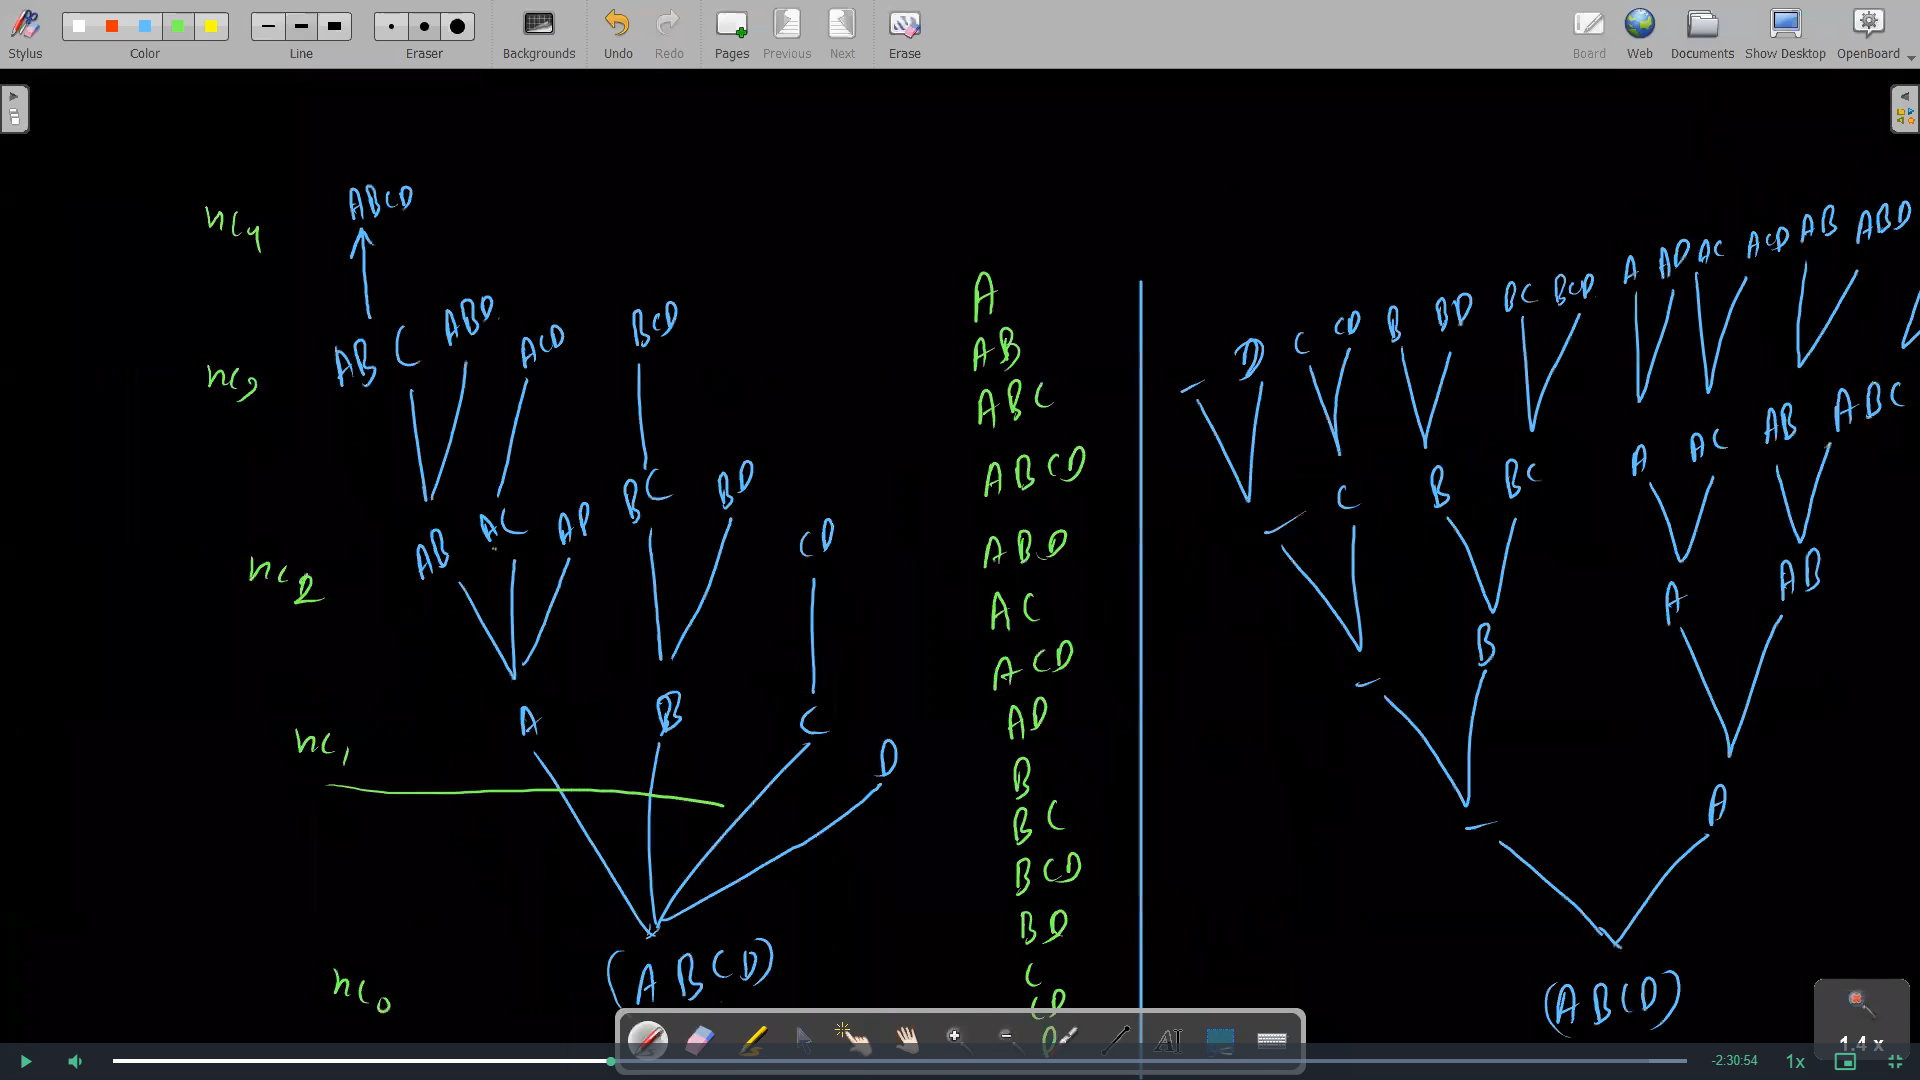 Stylus Color Line Eraser Backgrounds Undo Redo Pages Previous Next Erase Board Web Documents Show Desktop OpenBoard
nC4 ABCD
nC3 ABC ABD ACD BCD
nC2 AB AC AD BC BD CD
nC1 A B C D
nC0 (ABCD)
A
AB
ABC
ABCD
ABD
AC
ACD
AD
B
BC
BCD
BD
C
CD
D
– D C CD B BD BC BCD A AD AC ACD AB ABD
– C B BC A AC AB ABC
– B A AB
– A
(ABCD)
1.4 x
-2:30:54 1x